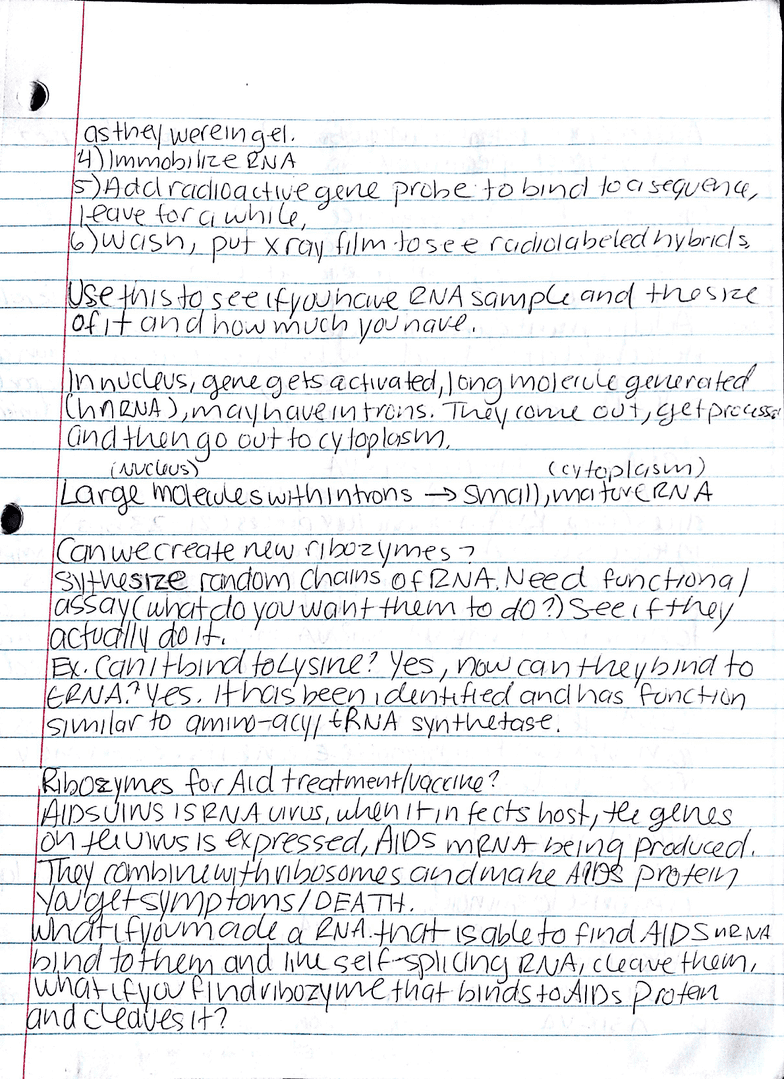 as they were in gel.
4) Immobilize RNA
5) Add radioactive gene probe to bind to a sequence,
leave for a while,
6) wash, put x ray film to see radiolabeled hybrids
Use this to see if you have RNA sample and the size
of it and how much you have.
In nucleus, gene gets activated, long molecule generated
(hnRNA), may have introns. They come out, get processed
and then go out to cytoplasm.
(nucleus) (cytoplasm)
Large molecules with introns → Small, mature RNA
Can we create new ribozymes?
Sythesize random chains of RNA. Need functional
assay (what do you want them to do?) See if they
actually do it.
Ex. Can it bind to Lysine? Yes, now can they bind to
tRNA? Yes. It has been identified and has function
similar to amino-acyl tRNA synthetase.
Ribozymes for Aid treatment/vaccine?
AIDS virus is RNA virus, when it infects host, the genes
on the virus is expressed, AIDS mRNA being produced.
They combine with ribosomes and make AIDS protein
You get symptoms/DEATH.
What if you made a RNA that is able to find AIDS mRNA
bind to them and like self-splicing RNA, cleave them,
what if you find ribozyme that binds to AIDs protein
and cleaves it?